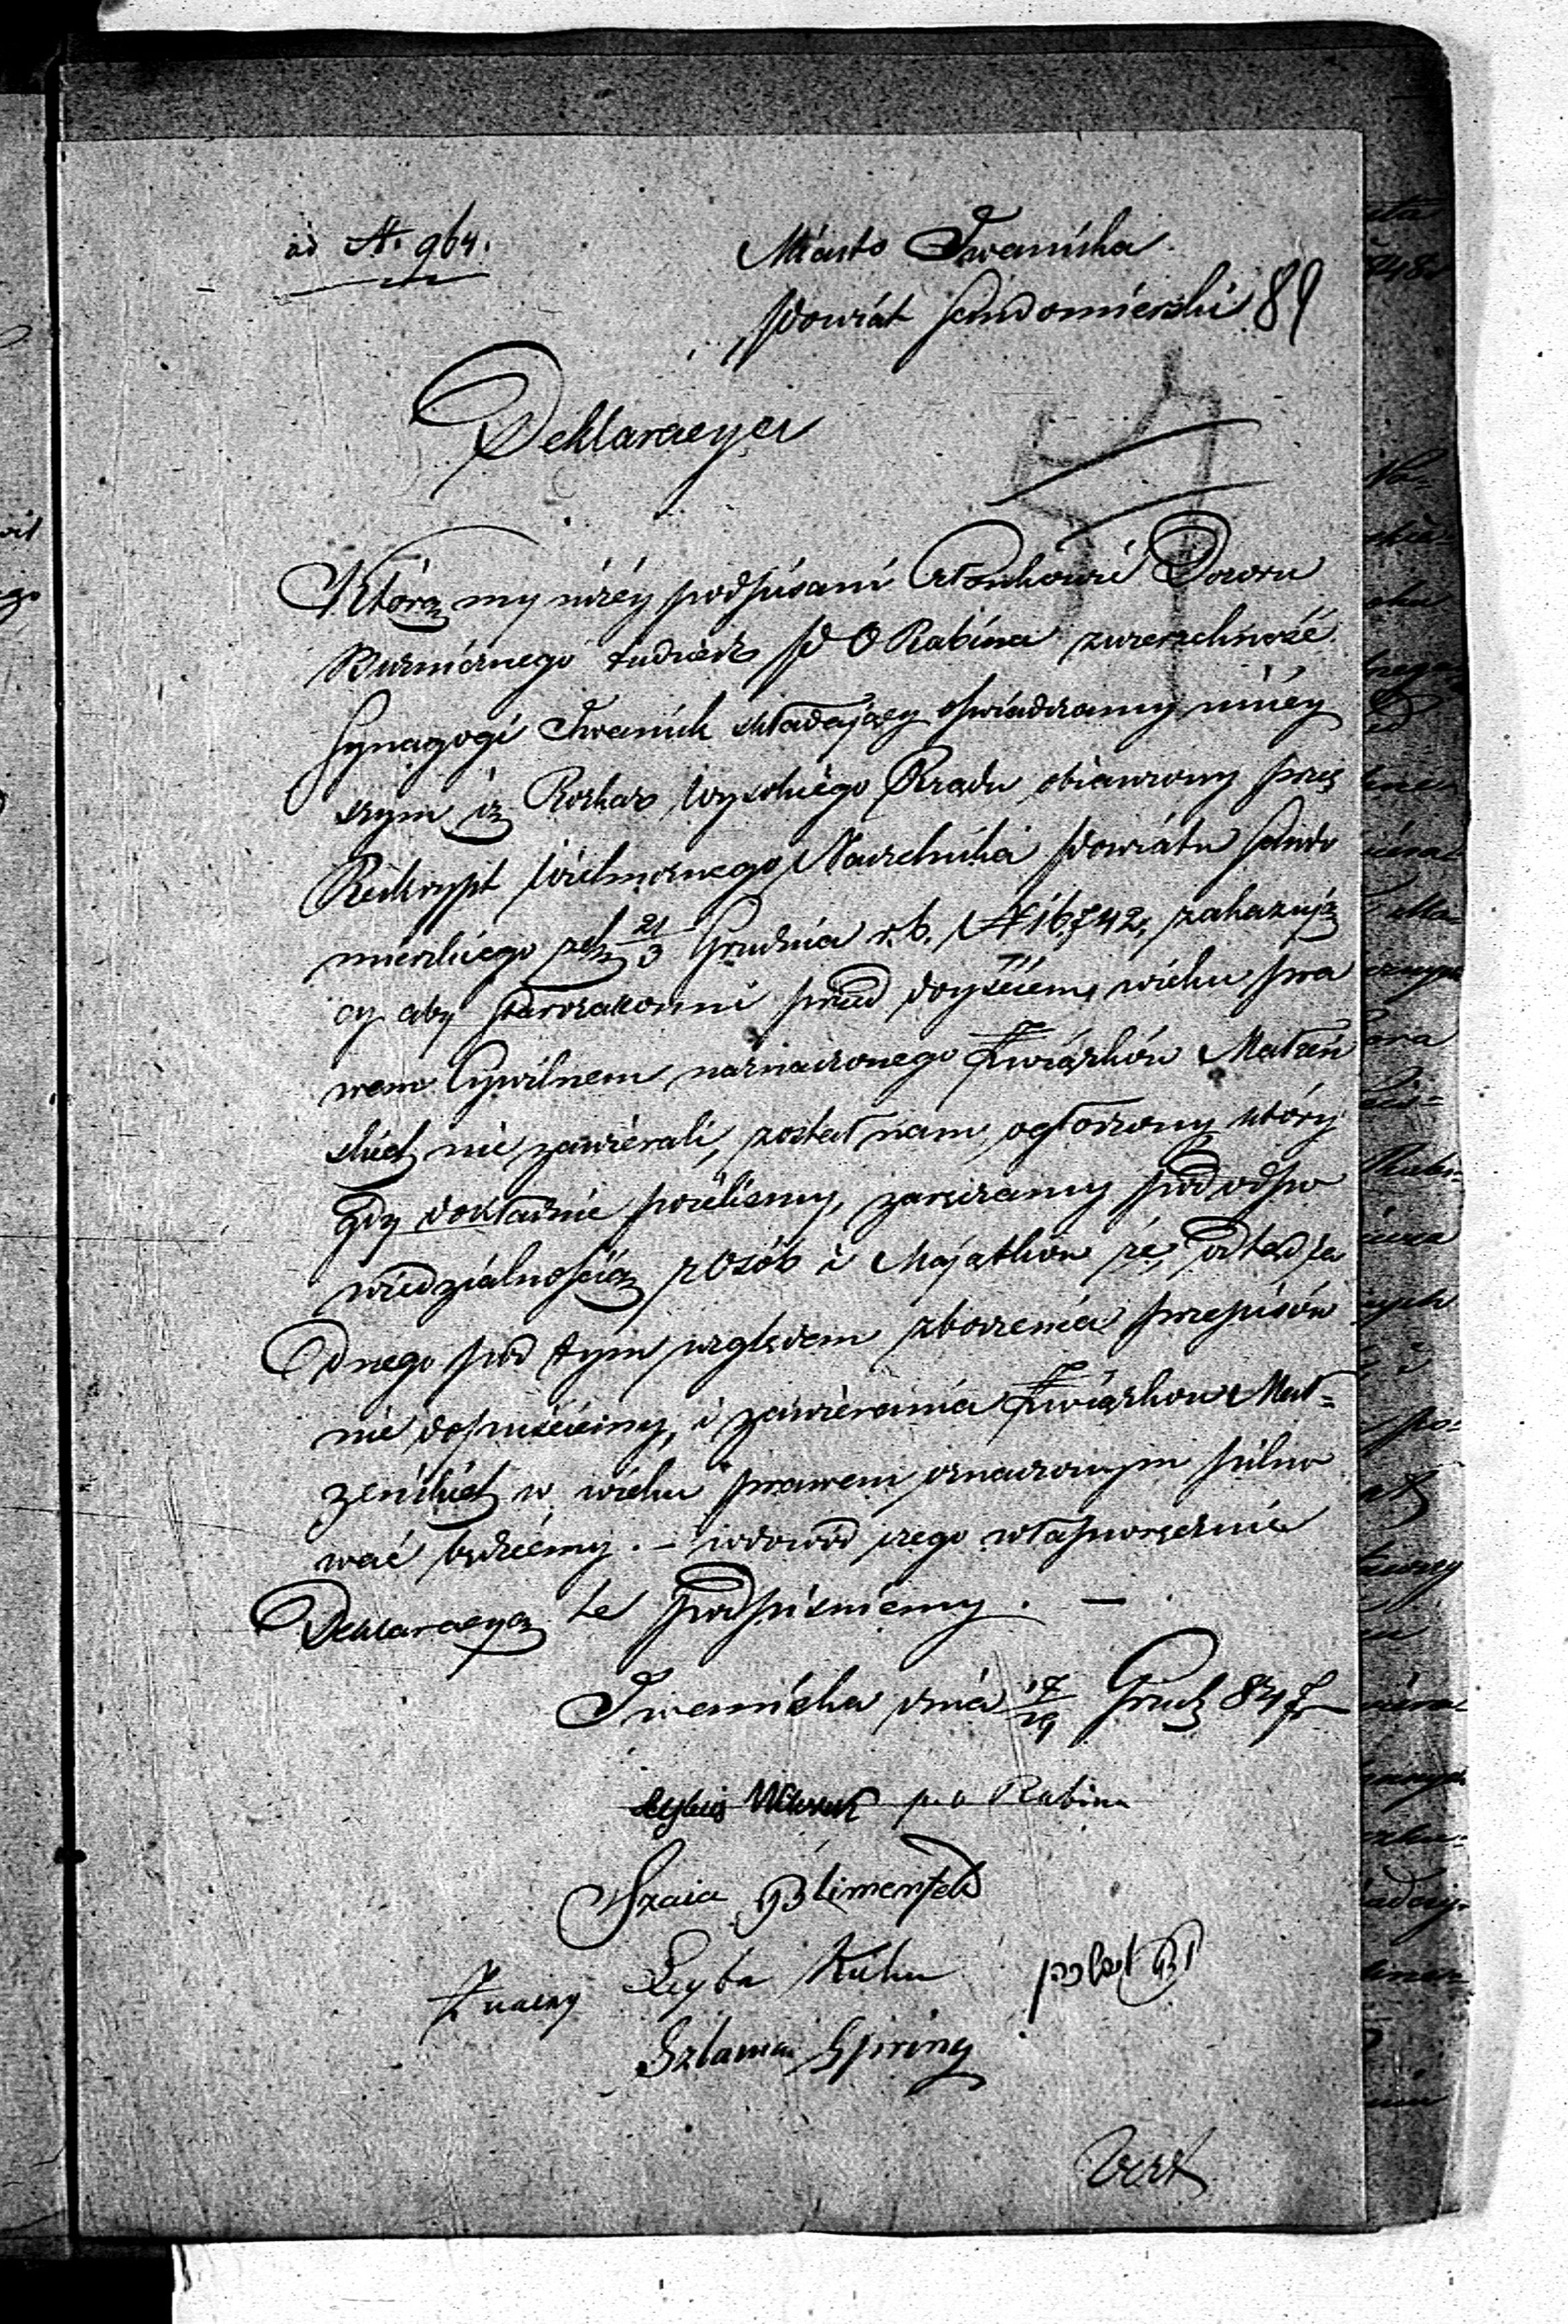 ad N. 964.
Miasto Iwaniska
Powiat Sandomierski 89
Deklaracyia
Którą my niżéy podpisani Członkowie Dozoru
Bużnicznego tudzież P O Rabina zwierzchność
Synagogi Iwanisk składający oświadczamy niniey
szym iż Rozkaz Wysokiego Rządu obiawiony przez
Reskrypt Wielmożnego Naczelnika Powiatu Sando
mierskiego z dn 21/3 Grudnia r.b. N 16,742, zakazują
cy aby Starozakonni przed doyściem wieku pra
wem Cywilnem naznaczonego Związków Małżeń
skich nie zawierali, został nam ogłoszony który
gdy dokładnie poieliśmy, zaręczamy pod odpo
wiedzialnością z Osób i Majątków że odtąd ża
dnego pod tym względem zboczenia przepisów
nie dopuściemy, i zawierania Związkow Mał-
żeńskich w wieku prawem oznaczonym pilno
wać będziemy. – w dowód czego własnoręcznie
Deklaracyą te podpisuiemy. –
Iwaniska dnia 17/29 Grud 847
p. o Rabina
Szaia Blimenfeld
Leyba Kuhn
Znaczny
Szlama Spiring
Vert